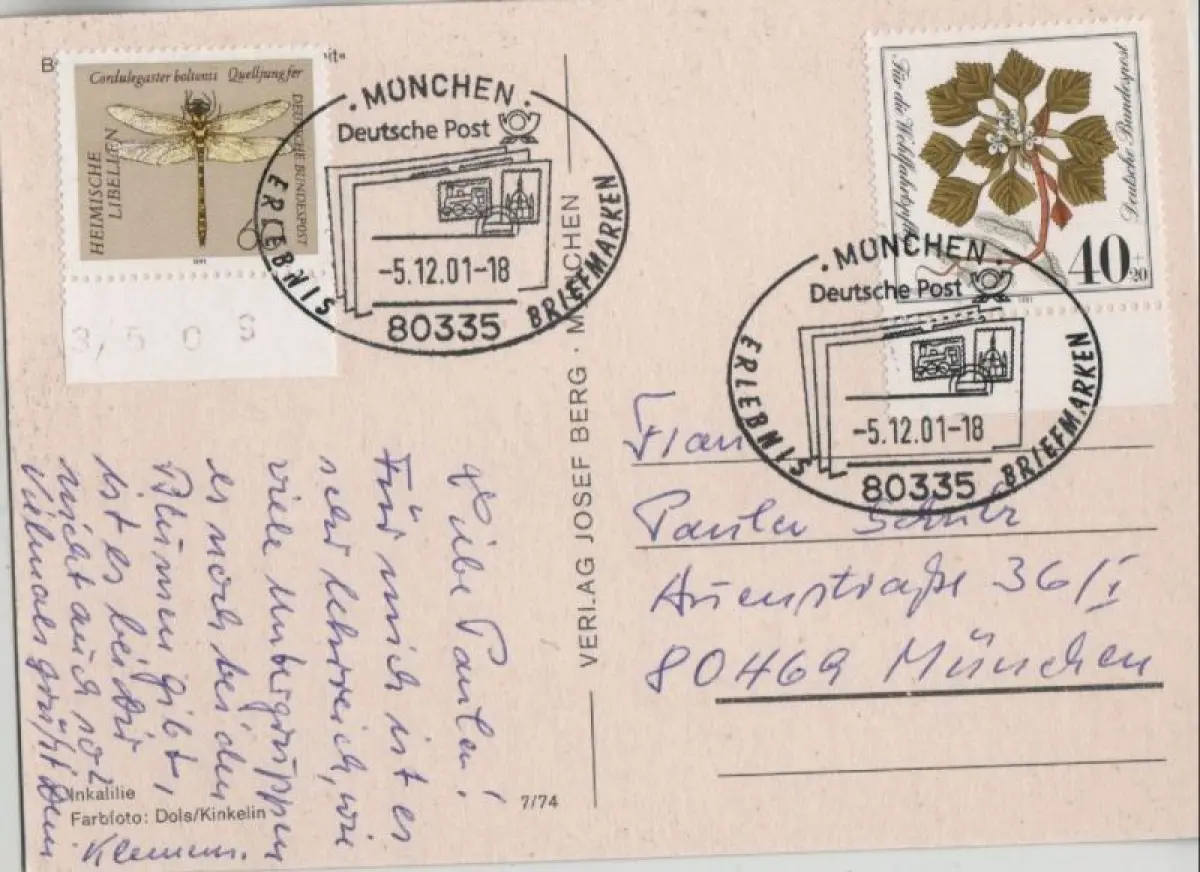 Cordulegaster boltonii Quelljungfer
HEIMISCHE
LIBELLEN
DEUTSCHE BUNDESPOST
1991
3/5 0 S
· MÜNCHEN ·
Deutsche Post
ERLEBNIS
BRIEFMARKEN
-5.12.01-18
80335
Für die Wohlfahrtspflege
Deutsche Bundespost
40+20
1981
· MÜNCHEN ·
Deutsche Post
ERLEBNIS
BRIEFMARKEN
-5.12.01-18
80335
VERLAG JOSEF BERG · MÜNCHEN
Liebe Paulen!
Für mich ist es
sehr lehrreich, wie
viele Untergruppen
es noch bei den
Blumen gibt,
ist es bei dir
nicht auch so?
Vielmals grüßt Dein
Klemens.
Frau
Paulen Schulz
Auenstraße 36/I
80469 München
Inkalilie
Farbfoto: Dols/Kinkelin
7/74